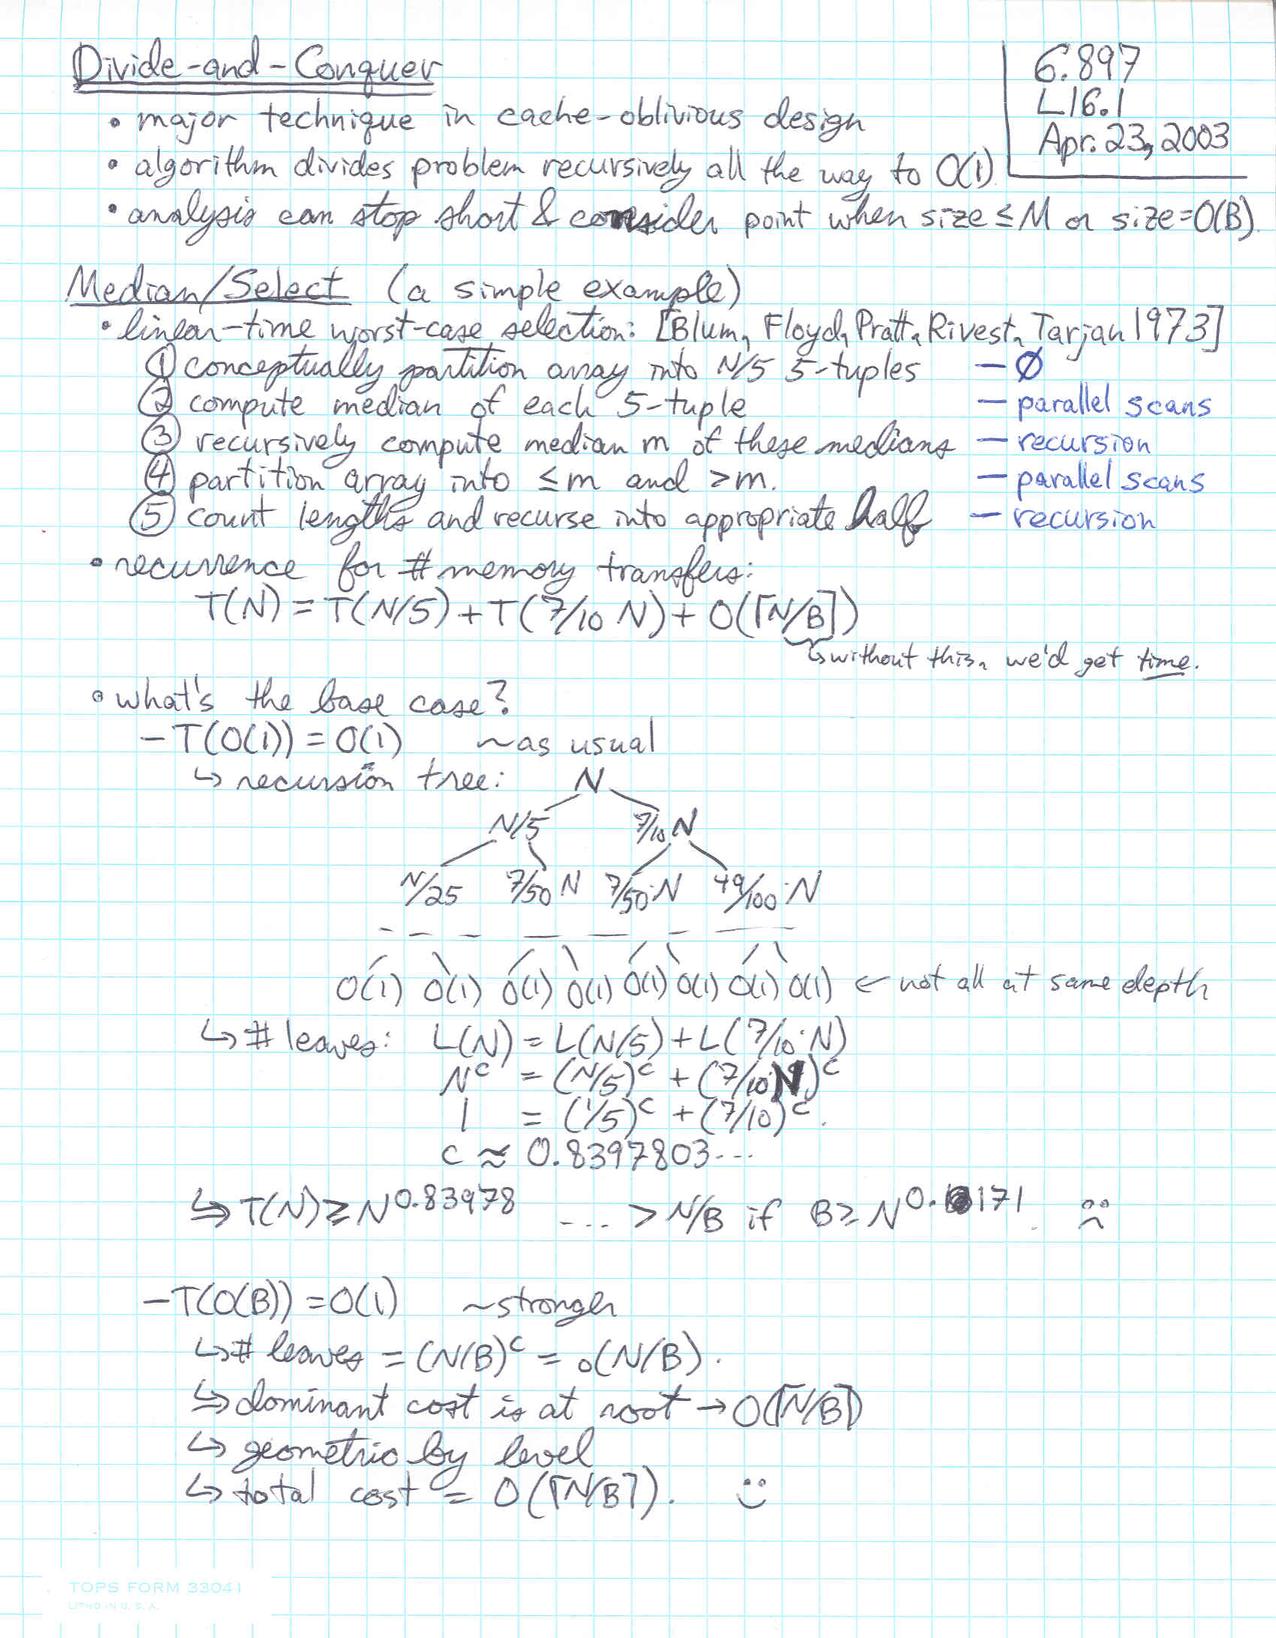 Divide-and-Conquer
6.897
L16.1
Apr. 23, 2003
• major technique in cache-oblivious design
• algorithm divides problem recursively all the way to O(1)
• analysis can stop short & consider point when size ≤ M or size = O(B).
Median/Select (a simple example)
• linear-time worst-case selection: [Blum, Floyd, Pratt, Rivest, Tarjan 1973]
① conceptually partition array into N/5 5-tuples — ∅
② compute median of each 5-tuple — parallel scans
③ recursively compute median m of these medians — recursion
④ partition array into ≤m and >m. — parallel scans
⑤ count lengths and recurse into appropriate half — recursion
• recurrence for # memory transfers:
T(N) = T(N/5) + T(7/10 N) + O(⌈N/B⌉)
↳ without this, we'd get time.
• what's the base case?
– T(O(1)) = O(1) ~ as usual
↳ recursion tree: N
N/5 7/10 N
N/25 7/50 N 7/50·N 49/100·N
O(1) O(1) O(1) O(1) O(1) O(1) O(1) O(1) ← not all at same depth
↳ # leaves: L(N) = L(N/5) + L(7/10·N)
N^c = (N/5)^c + (7/10 N)^c
1 = (1/5)^c + (7/10)^c.
c ≈ 0.8397803...
↳ T(N) ≥ N^0.83978 ... > N/B if B ≥ N^0.171 ☹
– T(O(B)) = O(1) ~ stronger
↳ # leaves = (N/B)^c = o(N/B).
↳ dominant cost is at root → O(⌈N/B⌉)
↳ geometric by level
↳ total cost = O(⌈N/B⌉). ☺
TOPS FORM 33041
LITHO IN U. S. A.